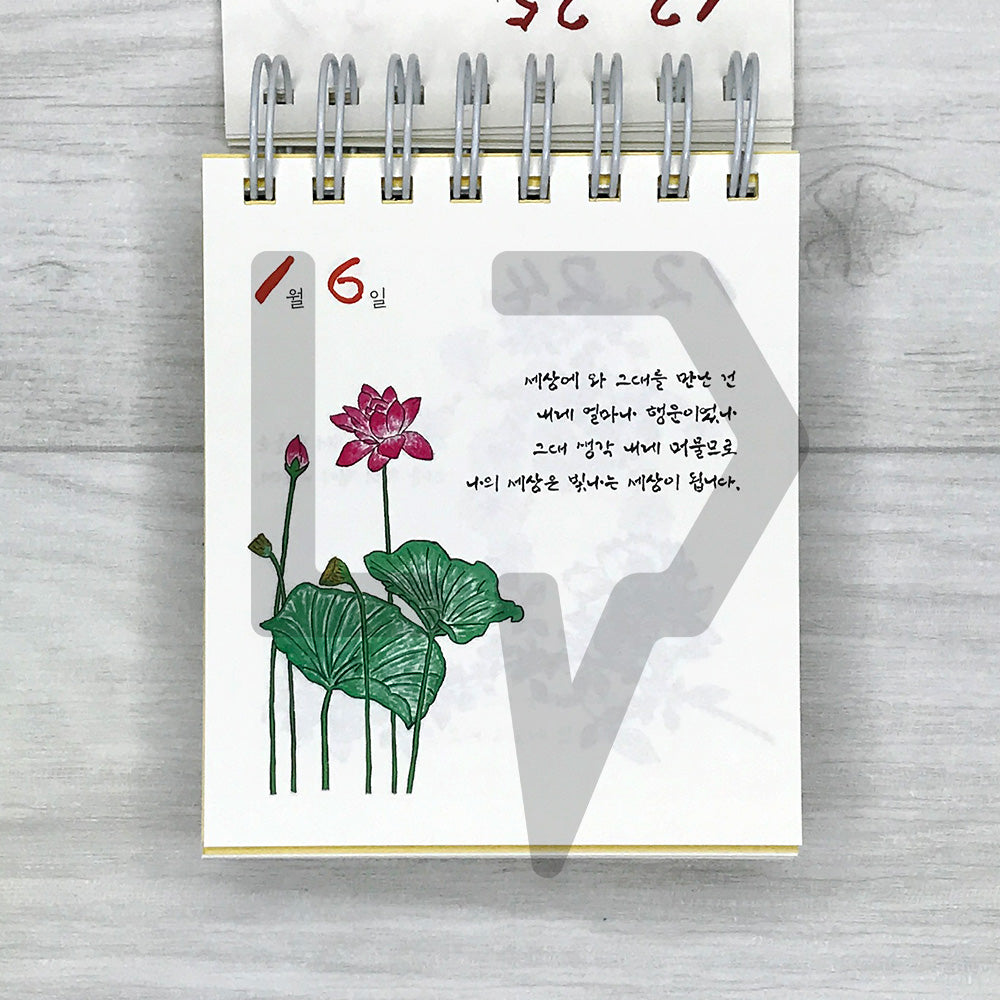 12 25
1월 6일
12 24
세상에 와 그대를 만난 건
내게 얼마나 행운이었나
그대 생각 내게 머물므로
나의 세상은 빛나는 세상이 됩니다.